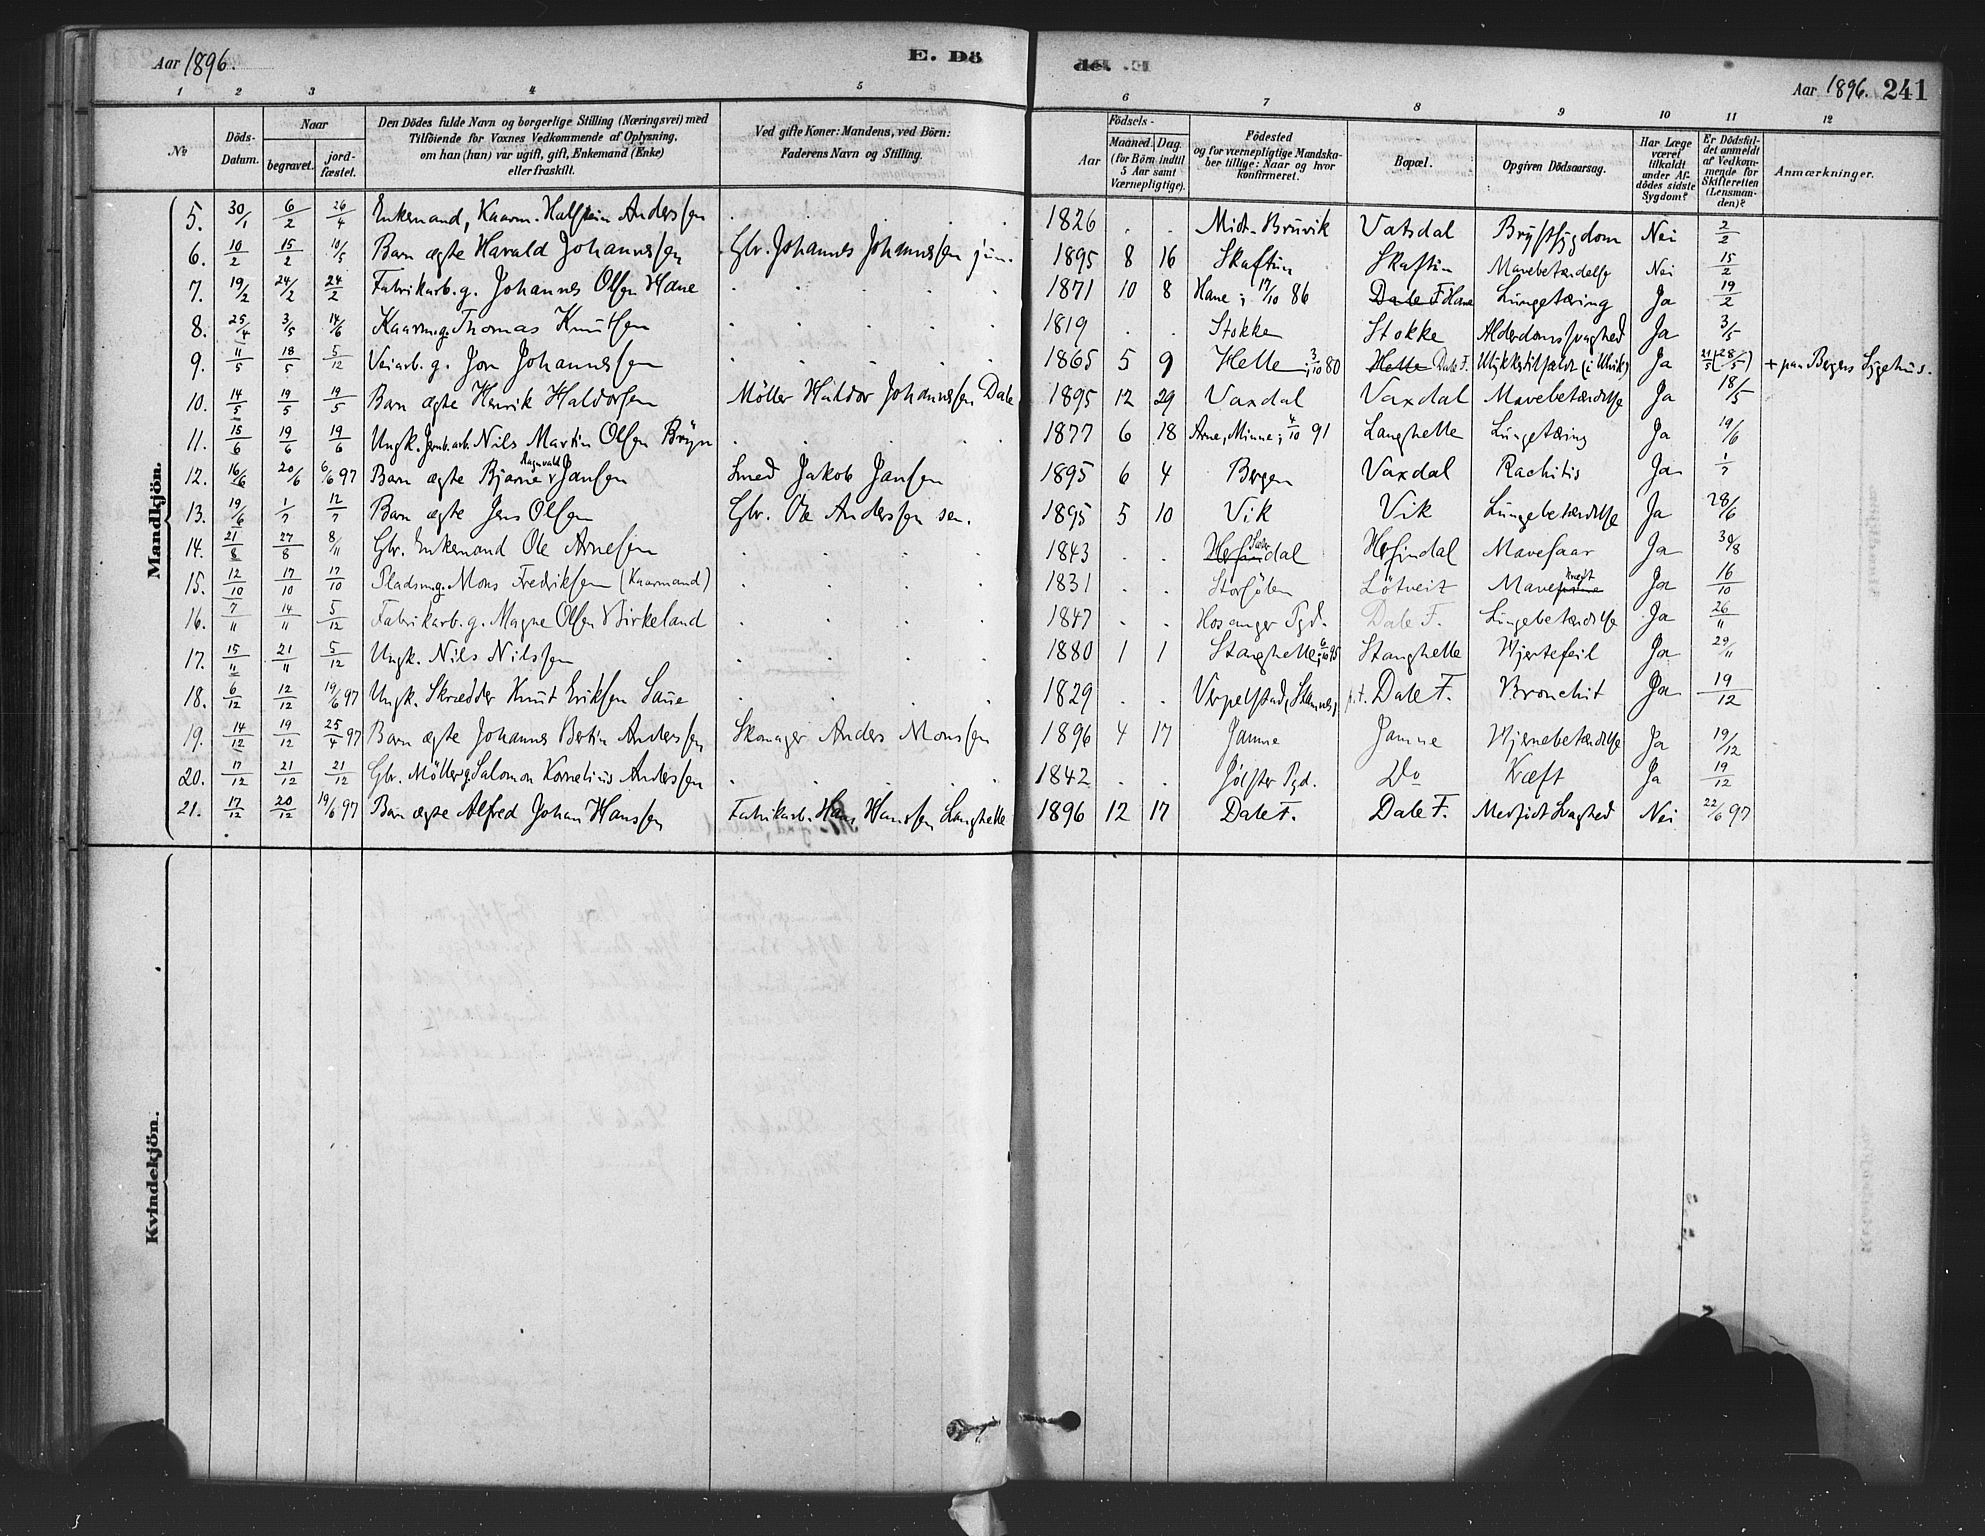 Aar 1896. E. Dö
de. Aar 1896. 241
1 2 3 4 5 6 7 8 9 10 11 12
№ Döds-Datum. Naar begravet. jord-fæstet. Den Dödes fulde Navn og borgerlige Stilling (Næringsvei) med Tilföiende for Voxnes Vedkommende af Oplysning, om han (hun) var ugift, gift, Enkemand (Enke) eller fraskilt. Ved gifte Koner: Mandens, ved Börn: Faderens Navn og Stilling. Födsels- Aar Maaned. Dag. (for Börn indtil 5 Aar samt Værnepligtige). Födested og for værnepligtige Mandskaber tillige: Naar og hvor konfirmeret. Bopæl. Opgiven Dödsaarsag. Har Læge været tilkaldt under Afdödes sidste Sygdom? Er Dödsfaldet anmeldt af Vedkommende for Skifteretten (Lensmanden)? Anmærkninger.
Mandkjön.
5. 30/1 6/2 26/4 Enkemand, Kaarm. Halstein Anderssen . 1826 . . Midt-Bruvik Vatsdal Brystsygdom Nei 2/2
6. 10/2 15/2 10/5 Barn ægte Harald Johannessen Gbr. Johannes Johannessen jun. 1895 8 16 Skaftun Skaftun Mavebetændelse Nei 15/2
7. 19/2 24/2 24/2 Fabrikarb. g. Johannes Olsen Hane . 1871 10 8 Hane; 17/10 86 Dale F. Hane Lungetæring Ja 19/2
8. 25/4 3/5 14/6 Kaarm. g. Thomas Knutsen . 1819 . . Stokke Stokke Alderdomssvaghed Ja 3/5
9. 11/5 18/5 5/12 Veiarb. g. Jon Johannessen . 1865 5 9 Helle; 3/10 80 Helle Dale F. Ulykkestilfælde (i Ulvik) Ja 21/5 (28/5) + paa Bergens Sygehus.
10. 14/5 19/5 19/5 Barn ægte Henrik Haldorsen Möller Haldor Johannessen Dale 1895 12 29 Vaxdal Vaxdal Mavebetændelse Ja 18/5
11. 15/6 19/6 19/6 Ungk. Jernb.arb. Nils Martin Olsen Bryn . 1877 6 18 Arne, Minne; 4/10 91 Langhelle Lungetæring Ja 19/6
12. 16/6 20/6 6/6 97 Barn ægte Bjarne Ragnvald Jansen Smed Jakob Jansen 1895 6 4 Bergen Vaxdal Rachitis Ja 1/7
13. 19/6 1/7 12/7 Barn ægte Jens Olsen Gbr. Ole Anderssen sen. 1895 5 10 Vik Vik Lungebetændelse Ja 28/6
14. 21/8 27/8 8/11 Gbr. Enkemand Ole Arnesen . 1843 . . dal Hesjedal Mavesaar Ja 30/8
15. 12/10 17/10 17/10 Pladsm. g. Mons Fredriksen (Kaarmand) . 1831 . . Lötveit Mavekræft Ja 16/10
16. 7/11 14/11 5/12 Fabrikarb. g. Magne Olsen Birkeland . 1847 . . Hosanger Pgd. Dale F. Lungebetændelse Ja 26/11
17. 15/11 21/11 5/12 Ungk. Nils Nilssen . 1880 1 1 Stanghelle; 6/10 95 Stanghelle Hjertefeil Ja 29/11
18. 6/12 12/12 19/6 97 Ungk. Skrædder Knut Eriksen Saue . 1829 . . Stamnes, p.t. Dale F. Bronchit Ja 19/12
19. 14/12 19/12 25/4 97 Barn ægte Johannes Bertin Anderssen Skomager Anders Monssen 1896 4 17 Jamne Jamne Hjernebetændelse Ja 19/12
20. 17/12 21/12 21/12 Gbr. Möller g. Salomon Kornelius Anderssen . 1842 . . Jölster Pgd. Do Kræft Ja 19/12
21. 17/12 20/12 19/6 97 Barn ægte Alfred Johan Hanssen Fabrikarb. Hans Hanssen Langhelle 1896 12 17 Dale F. Dale F. Medfødt Svaghed Nei 22/6 97
Kvindekjön.